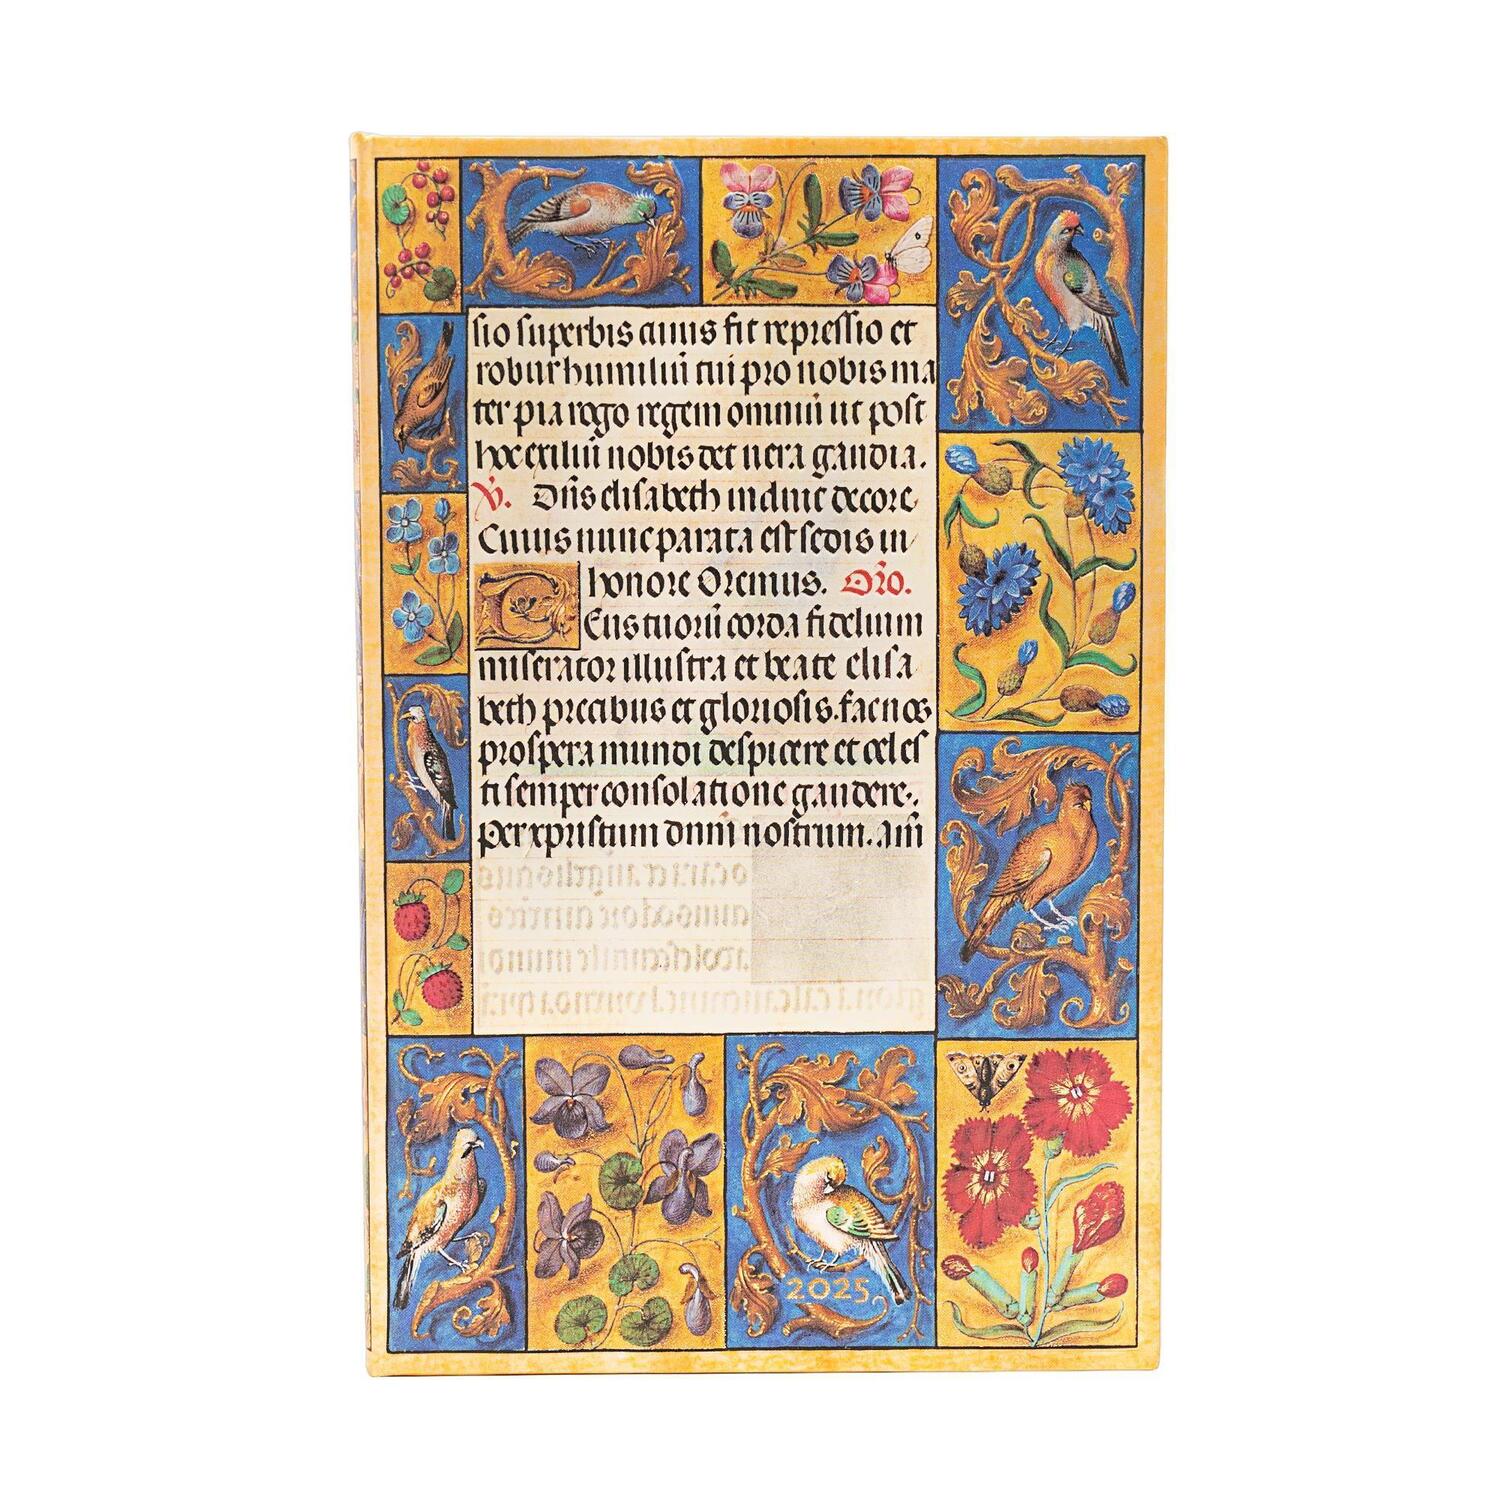 sio superbis cuius fit repressio et
robur humiliũ tui pro nobis ma
ter pia rogo regem omniũ ut post
hoc exiliũ nobis det uera gaudia.
V̇. Dñs elisabeth induit decore
Cuius nunc parata est sedis in
honore Oremus. Or̃o.
DEus tuorũ corda fidelium
miserator illustra et beate elisa
beth precibus et gloriosis. fac nos
prospera mundi despicere et celes
ti semper consolatione gaudere.
Per xpristum dnm̃ nostrum. am̃
2025